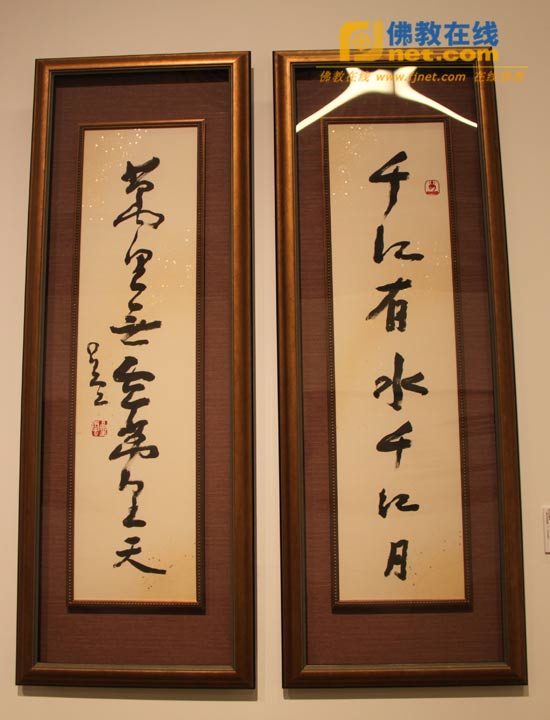 佛教在线
fjnet.com
佛教在线 www.fjnet.com 在线
千江有水千江月
萬里無雲萬里天